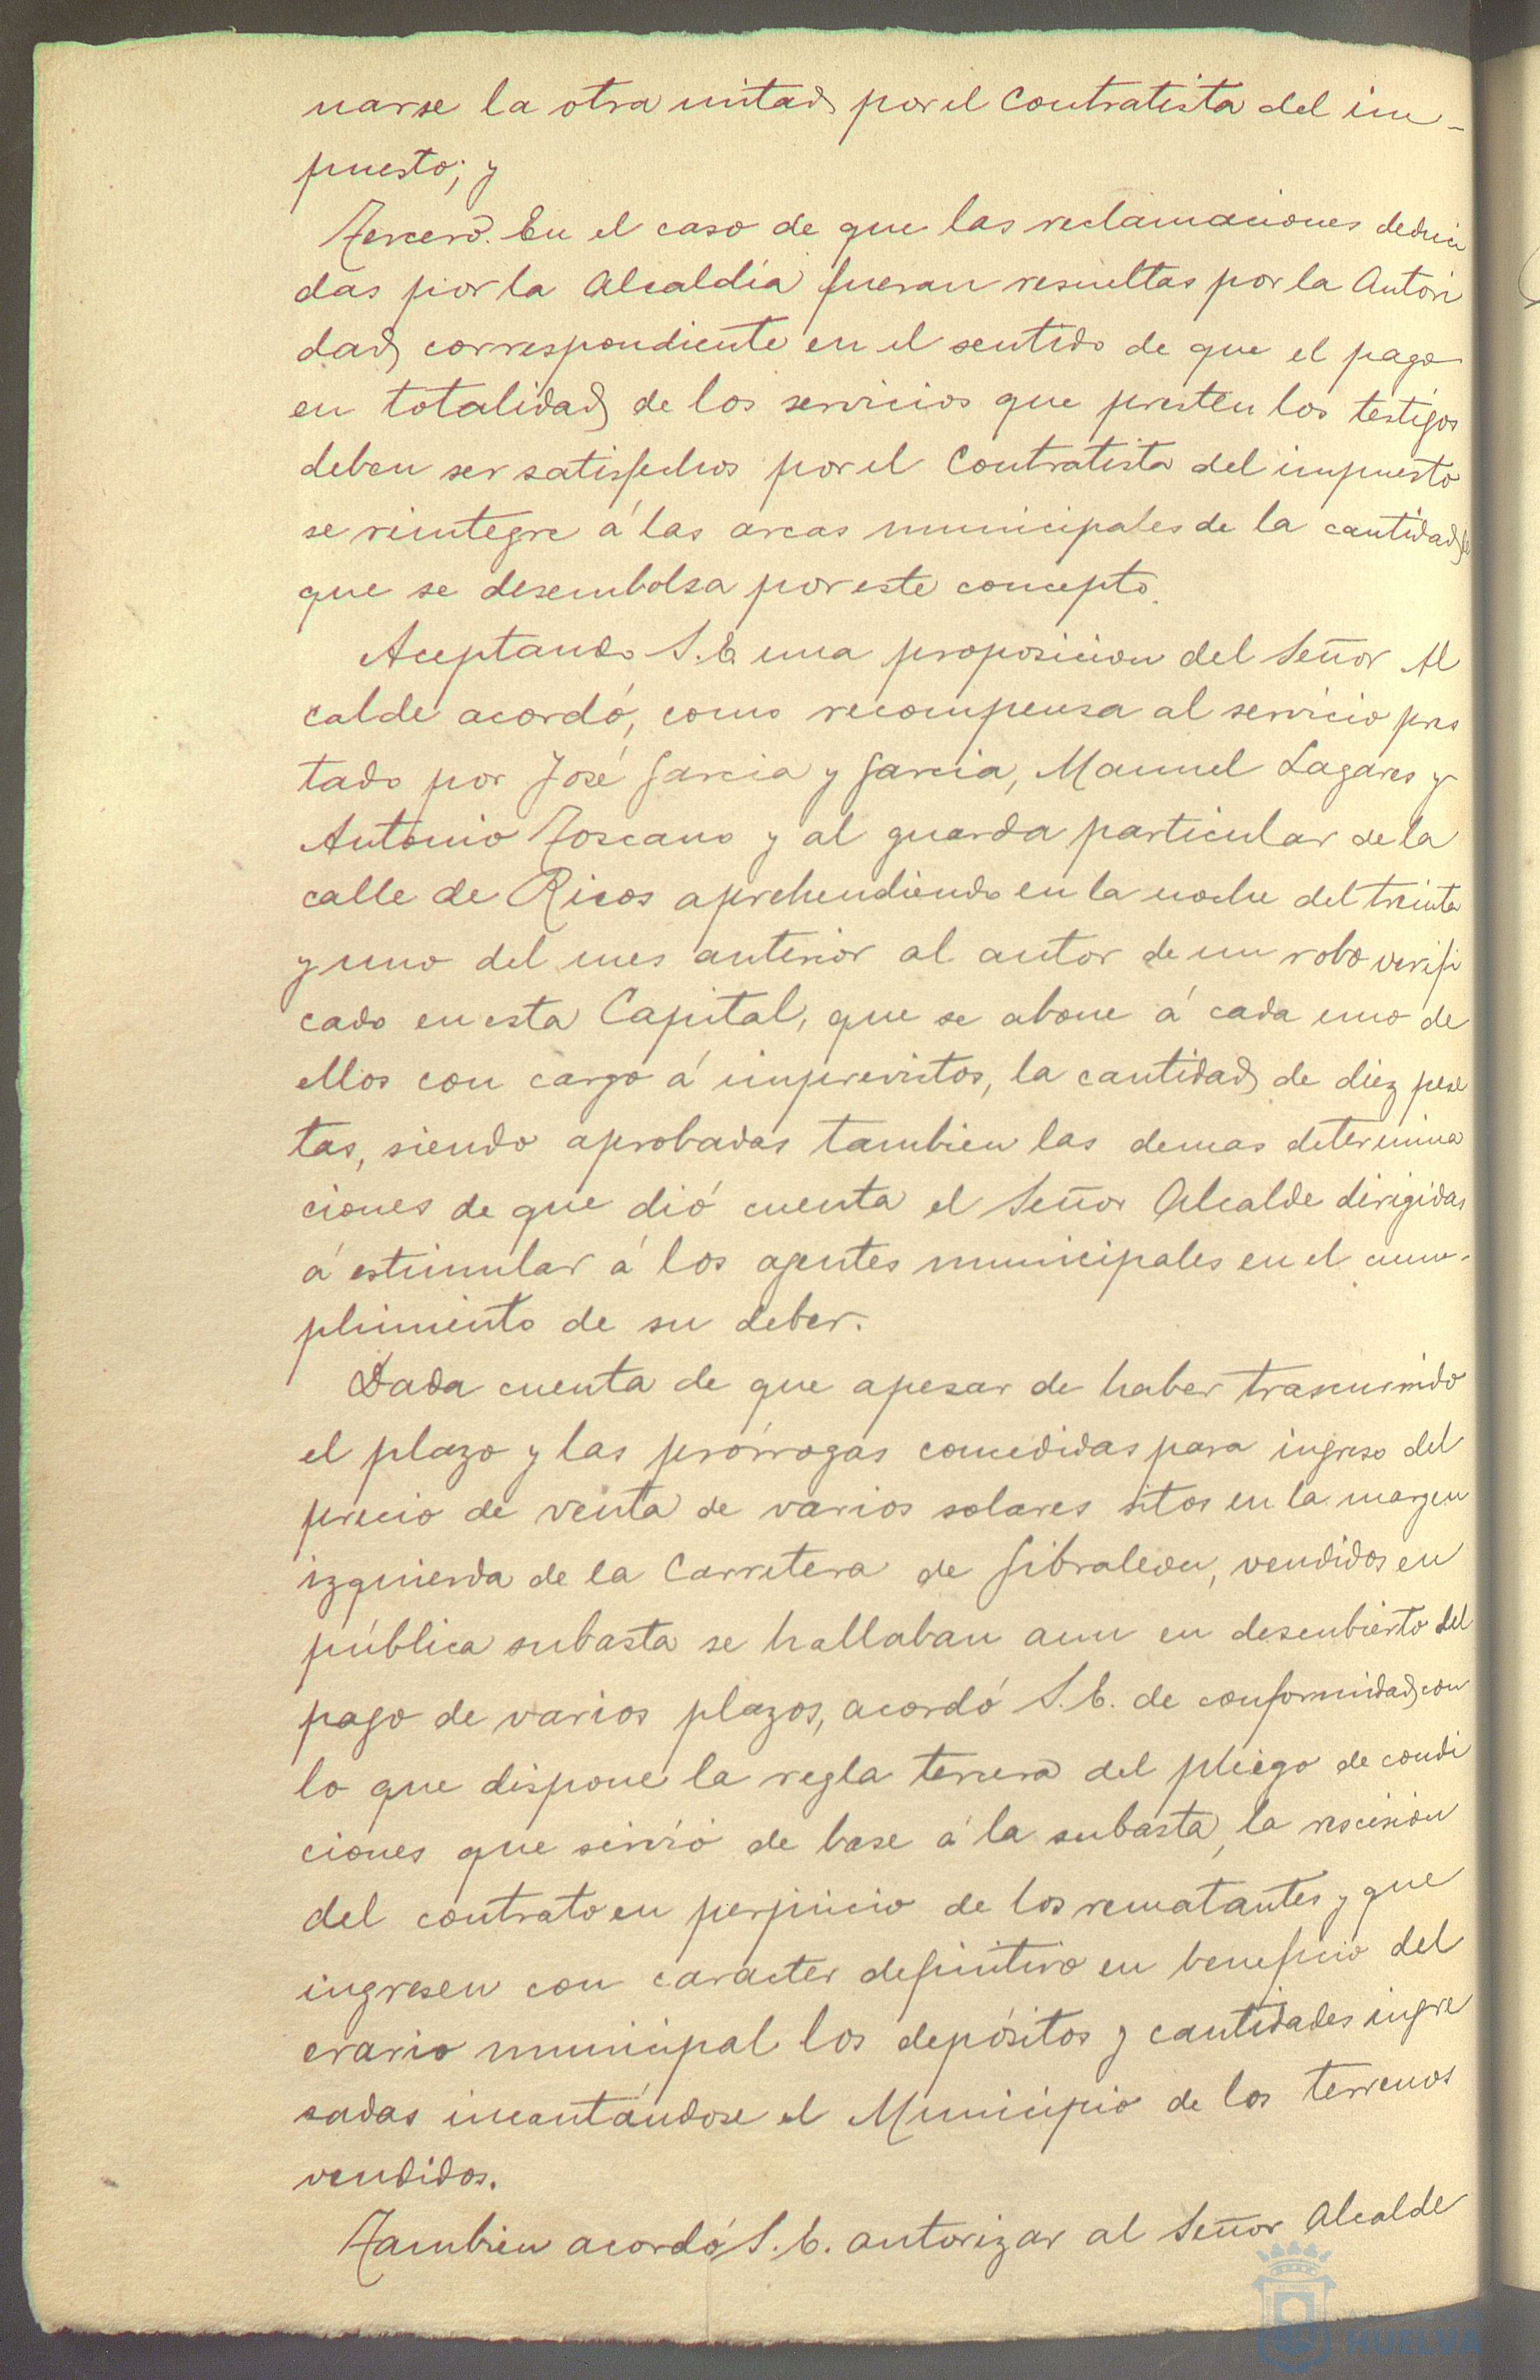 narse la otra mitad por el Contratista del im-
puesto; y
Tercero. En el caso de que las reclamaciones deduci
das por la Alcaldia fueran resueltas por la Autori
dad correspondiente en el sentido de que el pago
en totalidad de los servicios que presten los testigos
deben ser satisfechos por el Contratista del impuesto
se reintegre á las arcas municipales de la cantidad
que se desembolsa por este concepto.
Aceptando S. E. una proposicion del Señor Al
calde acordó, como recompensa al servicio pres
tado por José Garcia y Garcia, Manuel Lagares y
Antonio Toscano y al guarda particular de la
calle de Ricos aprehendiendo en la noche del treinta
y uno del mes anterior al autor de un robo verifi
cado en esta Capital, que se abone á cada uno de
ellos con cargo á imprevistos, la cantidad de diez pese
tas, siendo aprobadas tambien las demas determina
ciones de que dió cuenta el Señor Alcalde dirigidas
á estimular á los agentes municipales en el cum-
plimiento de su deber.
Dada cuenta de que apesar de haber trascurrido
el plazo y las prórrogas concedidas para ingreso del
precio de venta de varios solares sitos en la margen
izquierda de la Carretera de Gibraleon, vendidos en
pública subasta se hallaban aun en descubierto del
pago de varios plazos, acordó S. E. de conformidad con
lo que dispone la regla tercera del pliego de condi
ciones que sirvió de base á la subasta, la rescision
del contrato en perjuicio de los rematantes y que
ingresen con caracter definitivo en beneficio del
erario municipal los depósitos y cantidades ingre
sadas incantándose el Municipio de los terrenos
vendidos.
Tambien acordó S. E. autorizar al Señor Alcalde
HUELVA